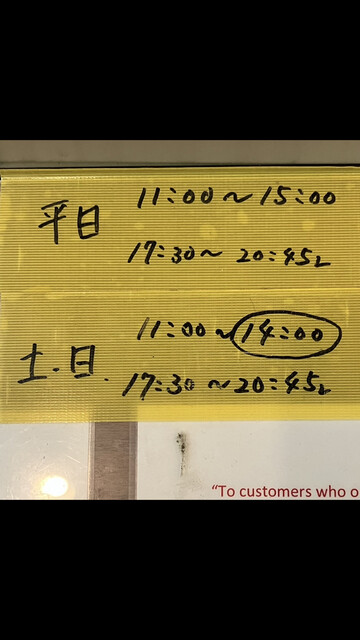 平日 11:00～15:00
17:30～20:45L
土.日. 11:00～14:00
17:30～20:45L
"To customers who o